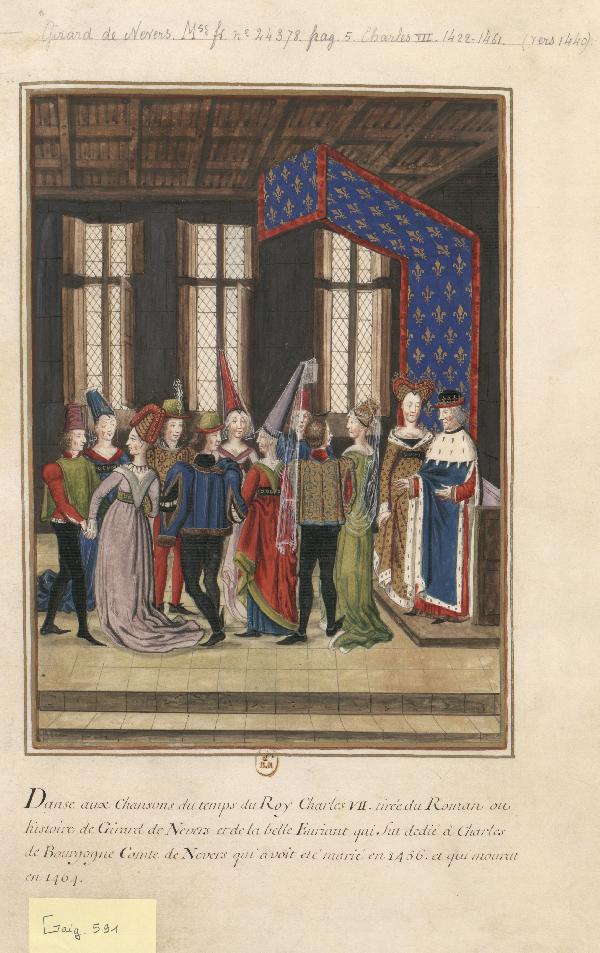 Girard de Nevers. Mss fr nº 24378. pag. 5. Charles VII. 1422-1461. (vers 1440).
B.R
Danse aux Chansons du temps du Roy Charles VII. tirée du Roman ou
histoire de Girard de Nevers et de la belle Euriant qui fut dedié à Charles
de Bourgogne Comte de Nevers qui avoit eté marié en 1456. et qui mourut
en 1464.
Gaig. 591